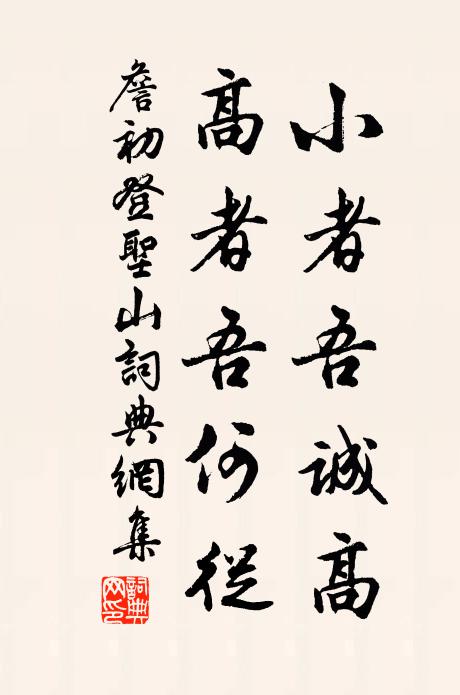 小者吾誠高
高者吾何從
詹初登聖山詞典網集
詞典网印